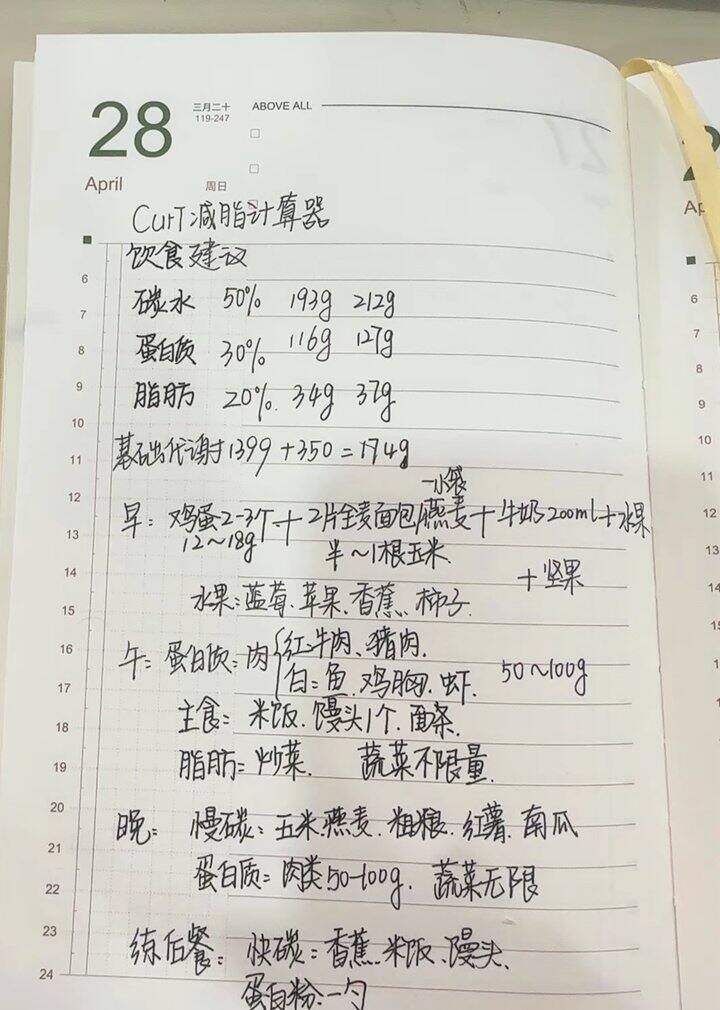 28
三月二十
119-247
ABOVE ALL
April
周日
CurT减脂计算器
饮食建议
碳水 50% 193g 212g
蛋白质 30% 116g 127g
脂肪 20%. 34g 37g
基础代谢 1399 + 350 = 1749
一小袋
早: 鸡蛋2-3个 + 2片全麦面包/燕麦 + 牛奶200ml + 水果
12~18g 半~1根玉米.
+ 坚果
水果: 蓝莓. 苹果. 香蕉. 柿子.
午: 蛋白质: 肉 红: 牛肉、猪肉.
白: 鱼. 鸡胸. 虾. 50~100g
主食: 米饭. 馒头1个. 面条.
脂肪: 炒菜. 蔬菜不限量.
晚: 慢碳: 玉米. 燕麦. 粗粮. 红薯. 南瓜
蛋白质: 肉类50-100g. 蔬菜无限
练后餐: 快碳: 香蕉. 米饭. 馒头.
蛋白粉: 一勺
6
7
8
9
10
11
12
13
14
15
16
17
18
19
20
21
22
23
24
6
7
8
9
10
11
12
13
14